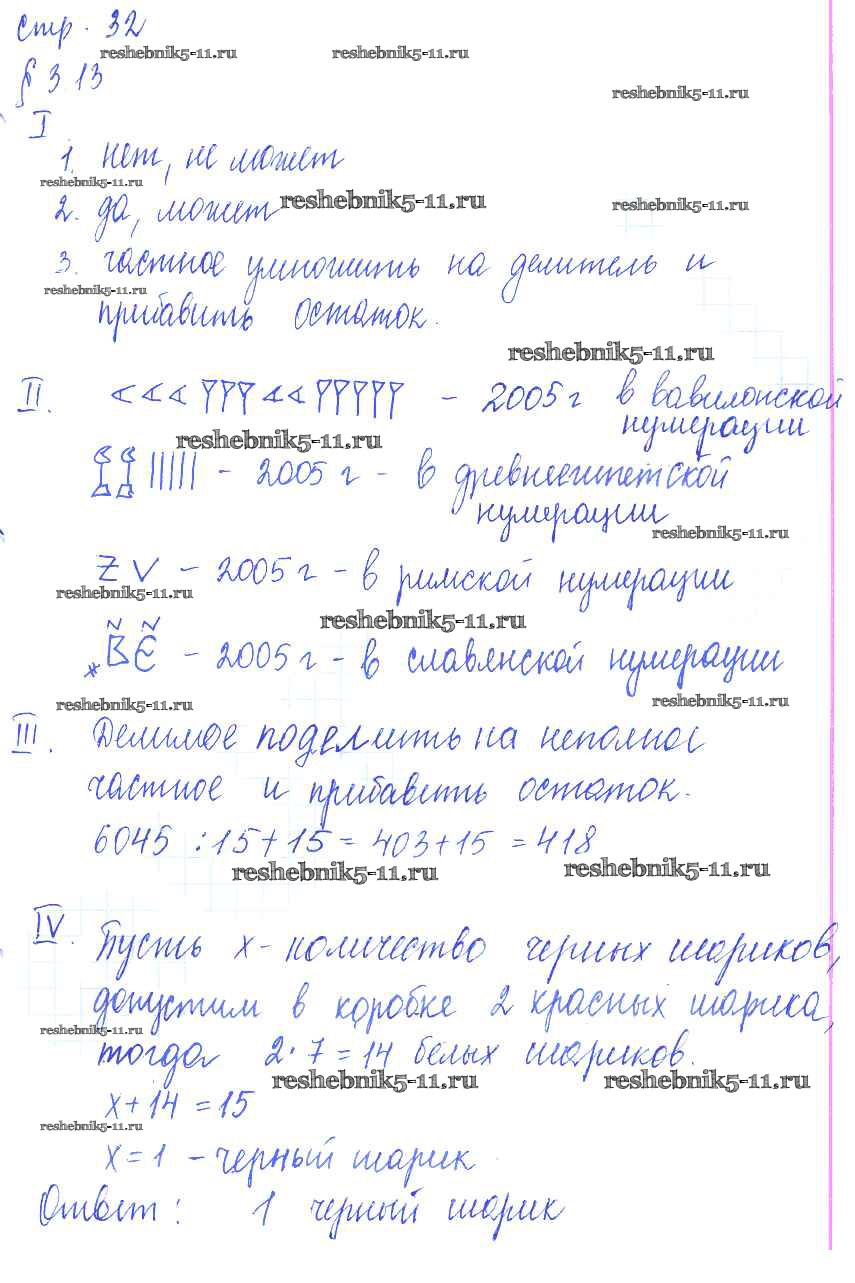 стр. 32
reshebnik5-11.ru reshebnik5-11.ru
§ 3 13
reshebnik5-11.ru
I
1. нет, не может
reshebnik5-11.ru
2. да, может reshebnik5-11.ru reshebnik5-11.ru
3. частное умножить на делитель и
reshebnik5-11.ru
прибавить остаток.
reshebnik5-11.ru
II. – 2005 г в вавилонской
нумерации
reshebnik5-11.ru
– 2005 г – в древнеегипетской
нумерации
reshebnik5-11.ru
Z V – 2005 г – в римской нумерации
reshebnik5-11.ru
reshebnik5-11.ru
– 2005 г – в славянской нумерации
reshebnik5-11.ru reshebnik5-11.ru
III. Делимое поделить на неполное
частное и прибавить остаток.
6045 : 15 + 15 = 403 + 15 = 418
reshebnik5-11.ru reshebnik5-11.ru
IV. Пусть x - количество черных шариков,
допустим в коробке 2 красных шарика,
reshebnik5-11.ru
тогда 2 · 7 = 14 белых шариков.
reshebnik5-11.ru reshebnik5-11.ru
x + 14 = 15
reshebnik5-11.ru
x = 1 – черный шарик
Ответ: 1 черный шарик